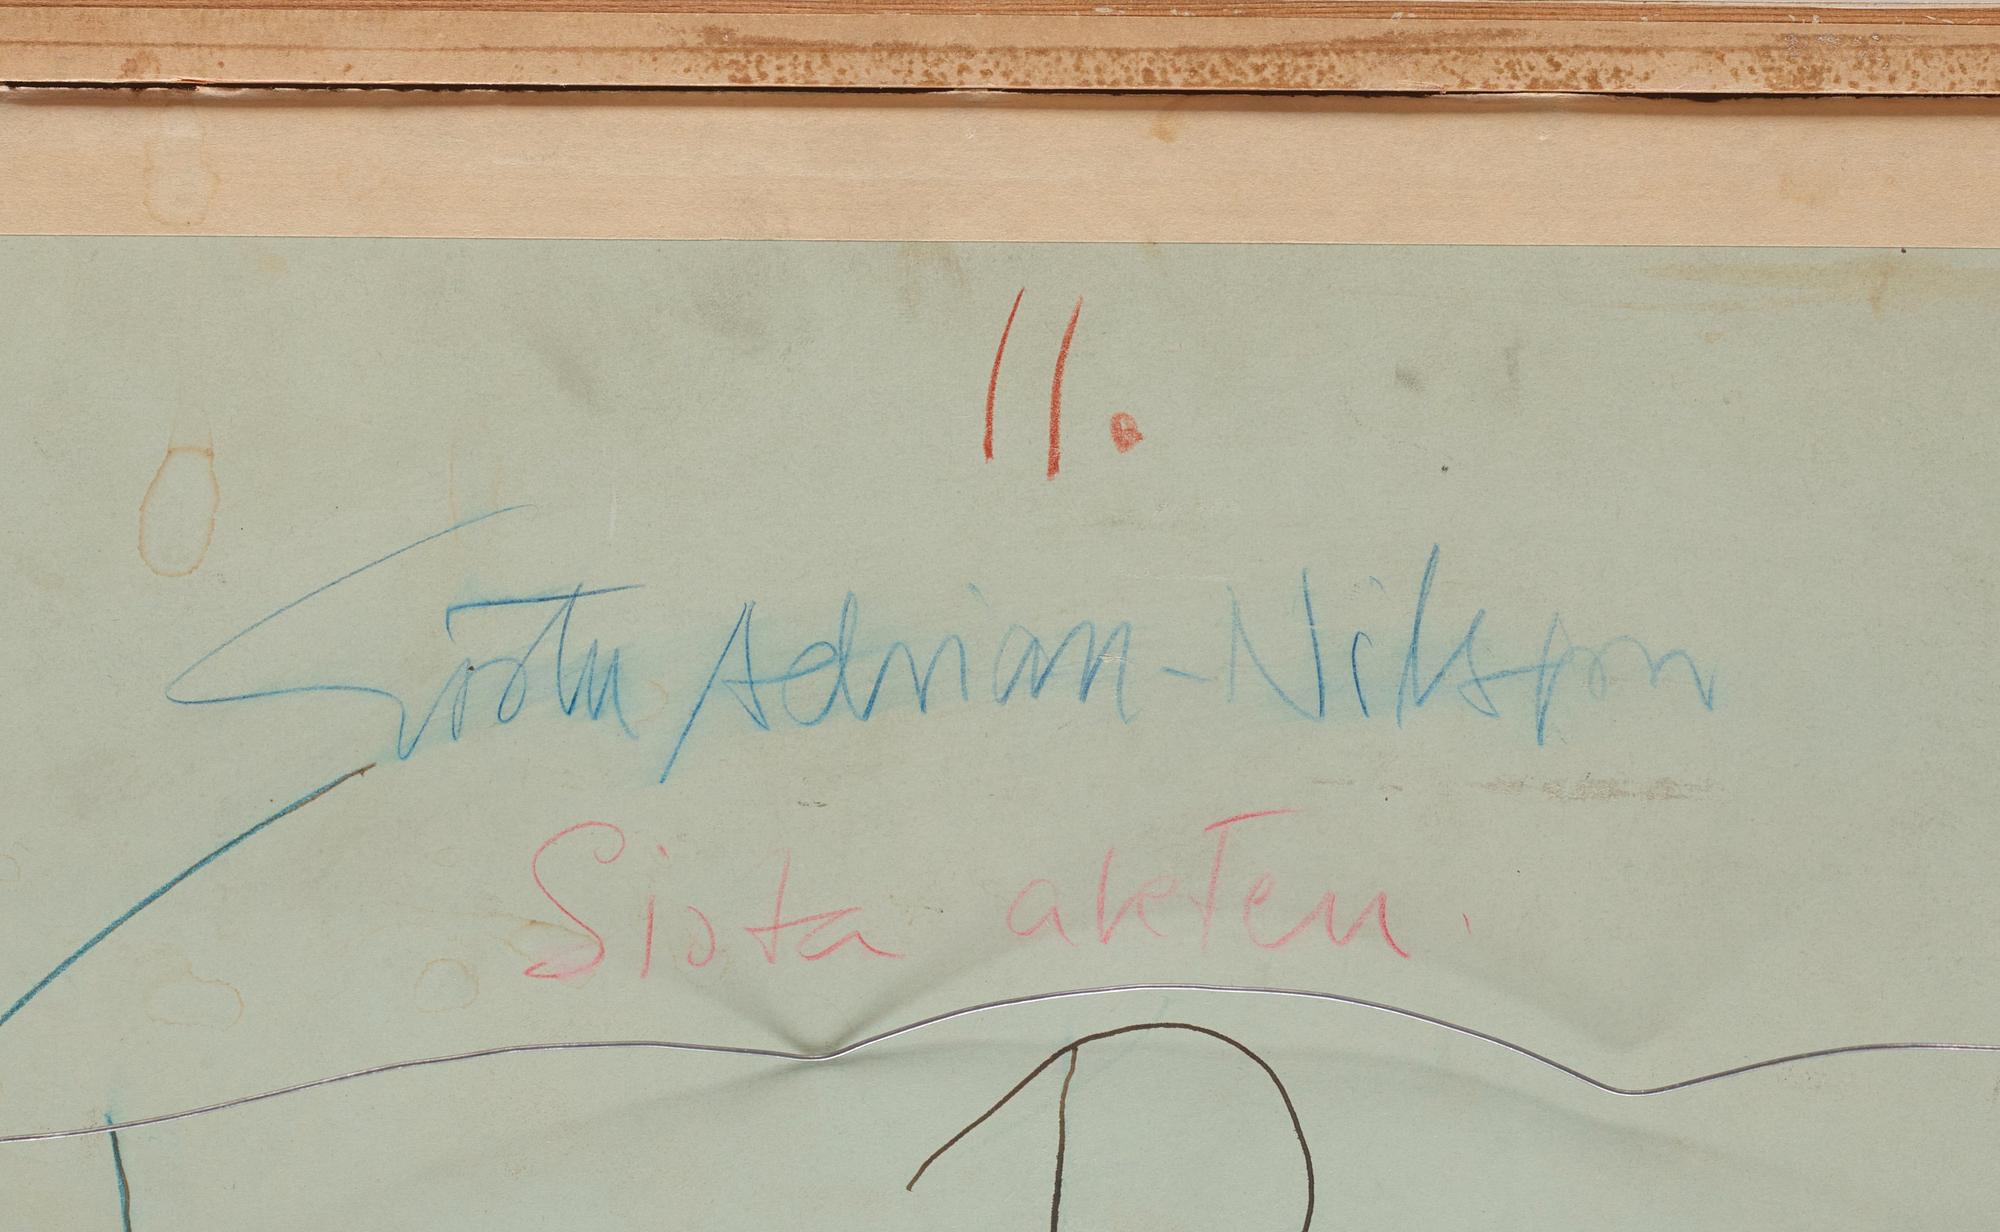 11.
Gösta Adrian-Nilsson
Sista akten.